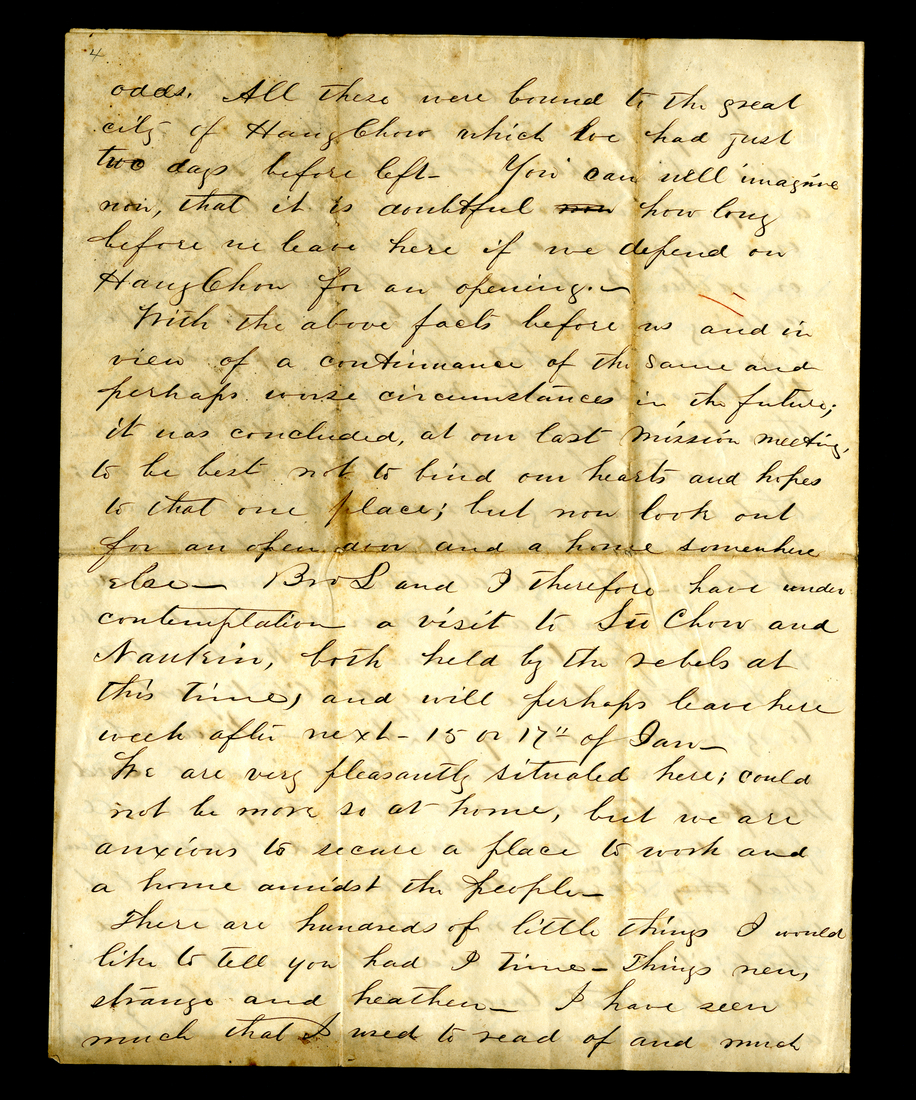 4.
odds. All these were bound to the great
city of HangChow which we had just
two days before left- You can well imagine
now, that it is doubtful now how long
before we leave here if we depend on
HangChow for an opening.-
With the above facts before us and in
view of a continuance of the same and
perhaps worse circumstances in the future;
it was concluded, at our last mission meeting,
to be best not to bind our hearts and hopes
to that one place; but now look out
for an open door and a home somewhere
else- Bro L and I therefore have under
contemplation a visit to Su Chow and
Nankin, both held by the rebels at
this time, and will perhaps leave here
week after next- 15 or 17" of Jan-
We are very pleasantly situated here; could
not be more so at home, but we are
anxious to secure a place to work and
a home amidst the people-
There are hundreds of little things I would
like to tell you had I time- Things new,
strange and heathen- I have seen
much that I used to read of and much